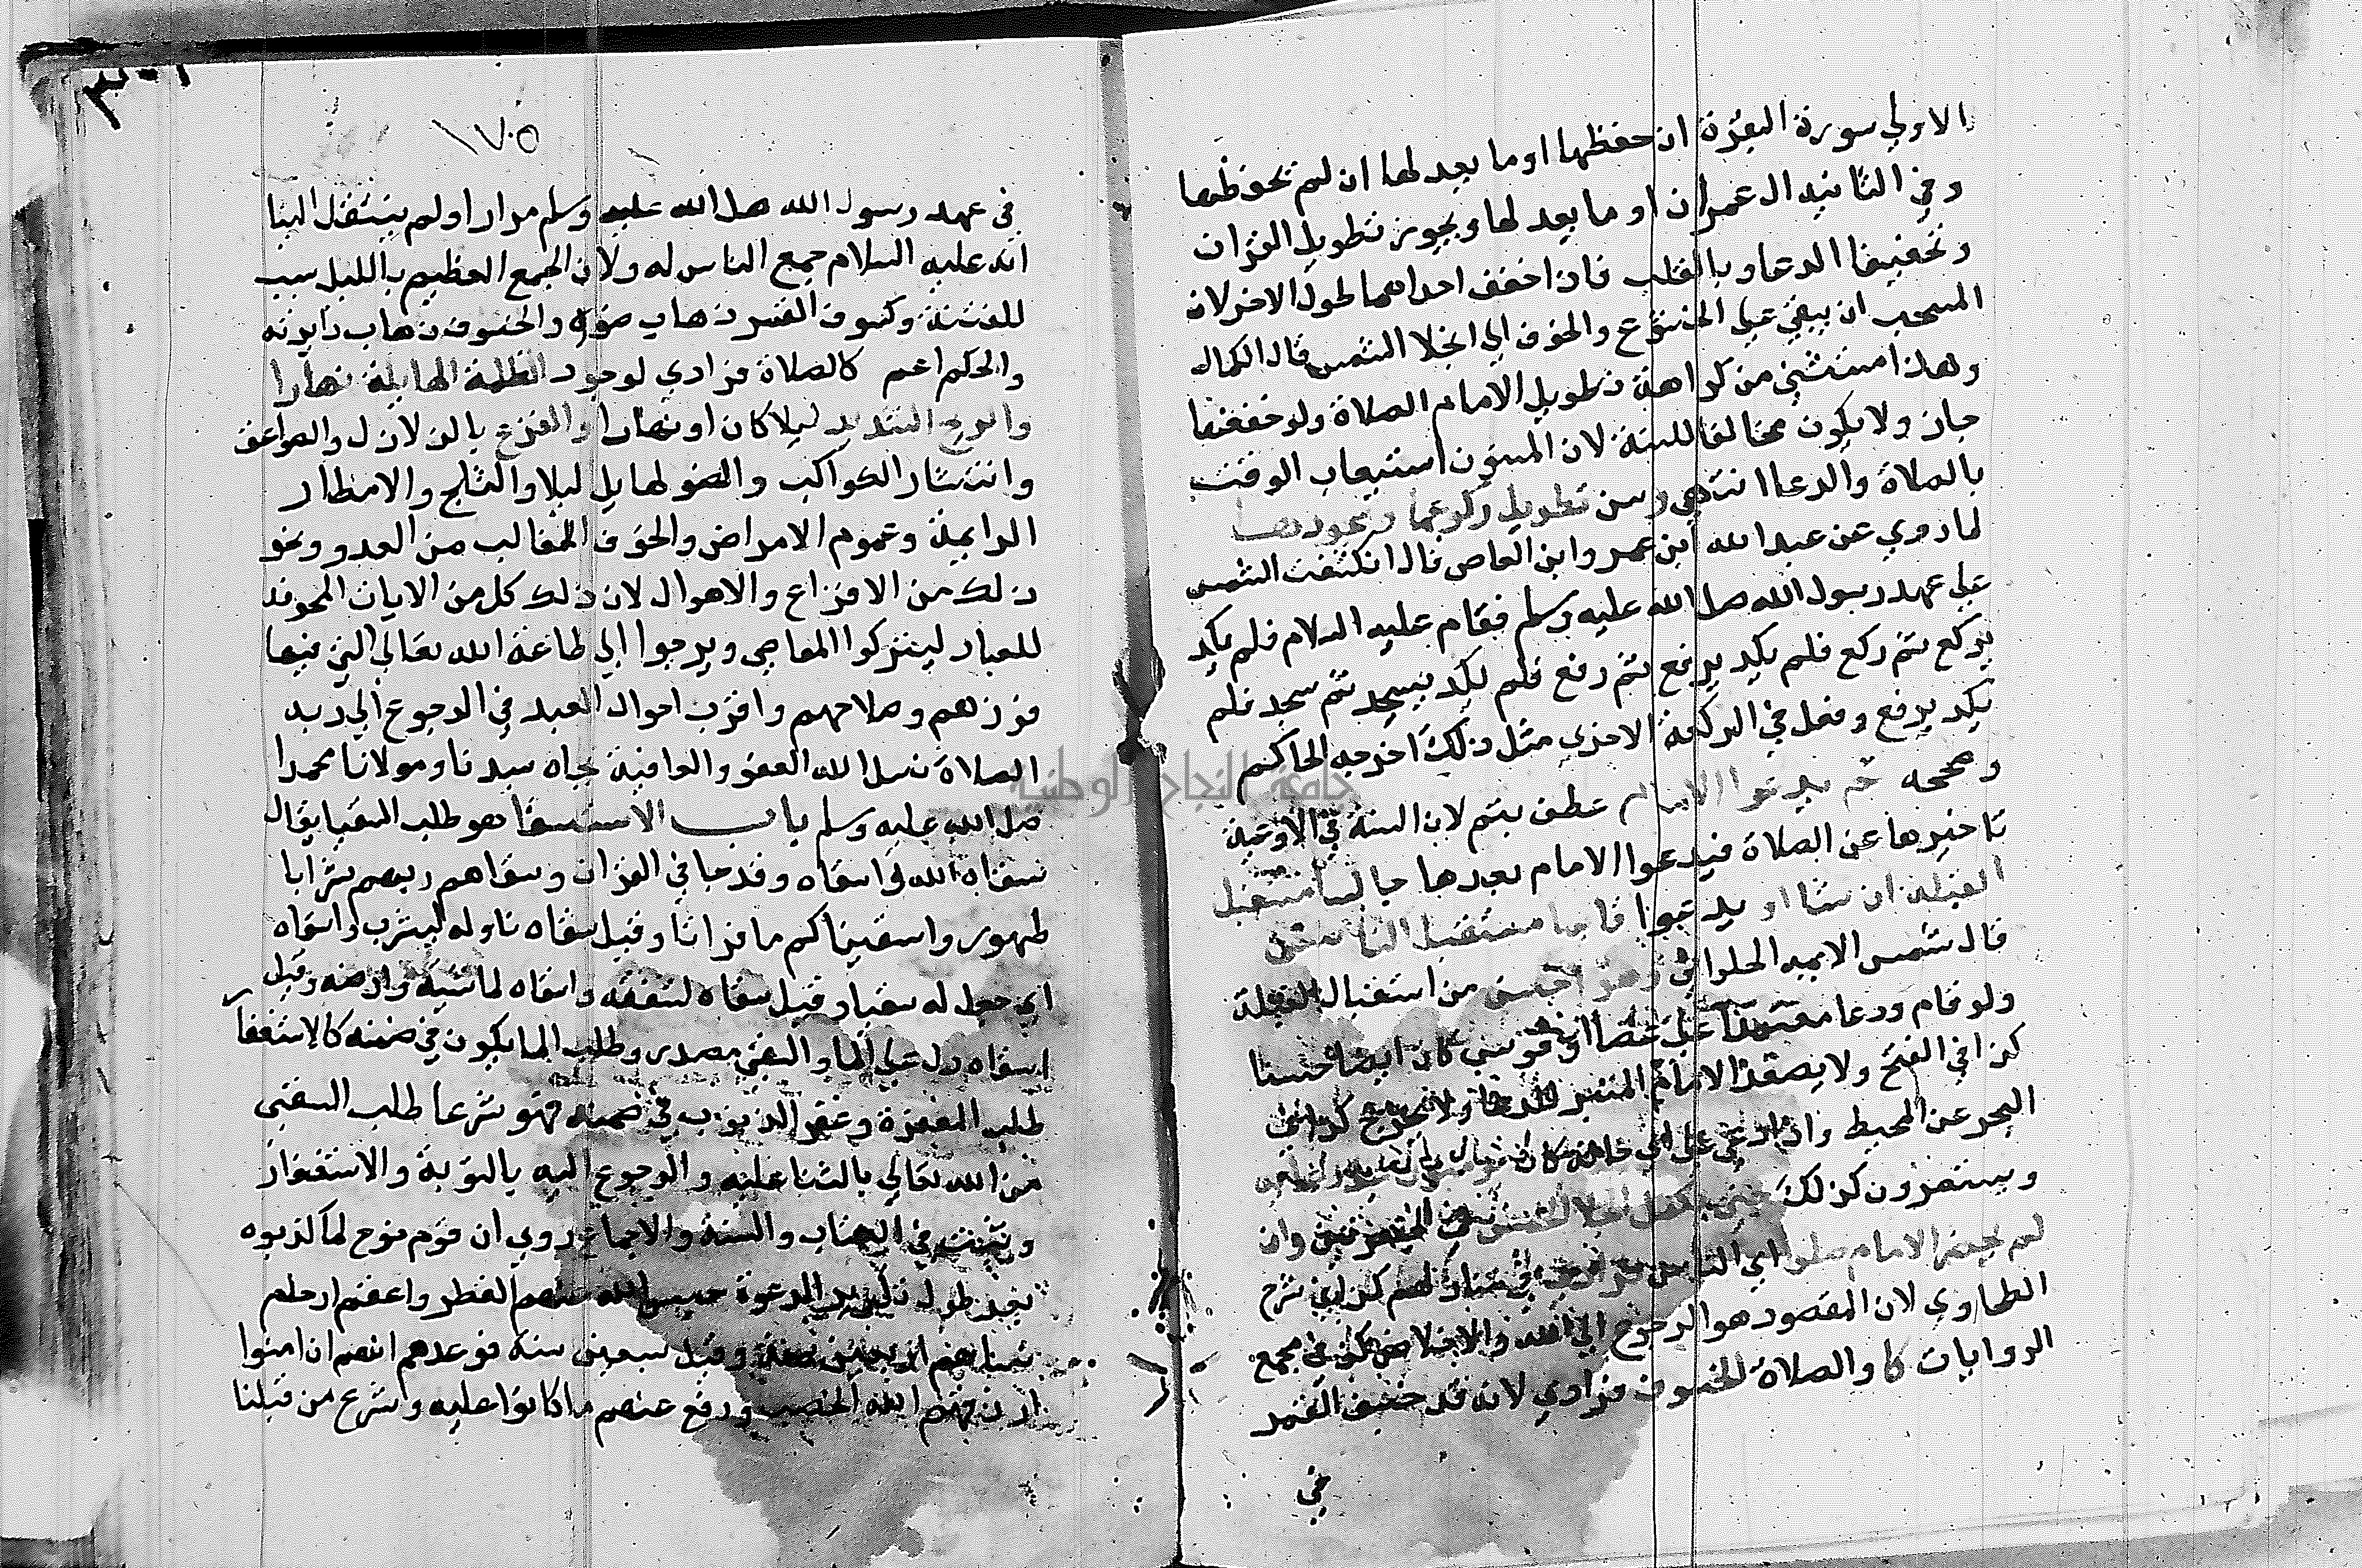 الاولي سورة البقرة ان حفظها او ما يعدلها ان لم يحفظها
وفي الثانيه ال عمران او ما يعدلها ويجوز تطويل القران
وتخفيف الدعا وبالقلب فاذا خفف احداهما طول الاخر لان
المستحب ان يبقي علي الخشوع والخوف الي انجلا الشمس قال الكمال
وهذا مستثني من كراهة تطويل الامام الصلاة ولو خففها
جاز ولا يكون مخالفا للسنة لان المسنون استيعاب الوقت
بالصلاة والدعا انتهي وسن تطويل ركوعها وسجودها
لما روي عن عبد الله ابن عمر وابن العاص قال انكسفت الشمس
علي عهد رسول الله صلي الله عليه وسلم فقام عليه السلام فلم يكد
يركع ثم ركع فلم يكد يرفع ثم رفع فلم يكد يسجد ثم سجد فلم
يكد يرفع وفعل في الركعة الاخري مثل ذلك اخرجه الحاكم
وصححه ثم يدعوا الامام عطف بثم لان السنة في الادعية
تاخيرها عن الصلاة فيدعوا الامام بعدها جالسا مستقبل
القبلة ان شا او يدعوا قايما مستقبل الناس
قال شمس الايمه الحلواني وهو احسن من استقبال القبلة
ولو قام ودعا معتمدا علي عصا او قوس كان ايضا حسنا
كذا في الفتح ولا يصعد الامام المنبر للدعا ولا يخرج كذا في
البحر عن المحيط واذا دعي
ويستمرون كذلك حتي يكمل انجلا الشمس وان
لم يحضر الامام صلوا اي الناس فرادي في منازلهم كذا في شرح
الطحاوي لان المقصود هو الرجوع الي الله والاخلاص مجمع
الروايات كا والصلاة للخسوف فرادي لانه قد خسف القمر
في
١٧٥
في عهد رسول الله صلي الله عليه وسلم مرارا ولم ينتقل الينا
انه عليه السلام جمع الناس له ولان الجمع العظيم بالليل سبب
للفتنة وكسوف القمر ذهاب ضوه والخسوف ذهاب دايرته
والحكم اعم كالصلاة فرادي لوجود الظلمة الهايلة نهارا
والريح الشديد ليلا كان او نهارا والفزع بالزلازل والصواعق
وانتشار الكواكب والضو الهايل ليلا والثلج والامطار
الدايمة وعموم الامراض والخوف الغالب من العدو ونحو
ذلك من الافزاع والاهوال لان ذلك كل من الايات المخوفة
للعباد ليتركوا المعاصي ويرجوا الي طاعة الله تعالي التي فيها
فوزهم وصلاحهم واقرب احوال العبد في الرجوع الي ربه
الصلاة نسل الله العفو والعافية بجاه سيدنا ومولانا محمدا
صلي الله عليه وسلم باب الاستسقا هو طلب السقيا يقال
سقاه الله واسقاه وقد جا في القران وسقاهم ربهم شرابا
طهور واسقيناكم ما فراتا وقيل سقاه ناوله ليشرب واسقاه
اي جعل له سقيا وقيل سقاه لشفته واسقاه لماشيته وارضه وقيل
اسقاه دل علي الما والسقي مصدر وطلب الما يكون في ضمنه كالاستغفار
طلب المغفرة وغفر الذنوب في ضمنه فهو شرعا طلب السقي
من الله تعالي بالثنا عليه والرجوع اليه بالتوبة والاستغفار
وثبت في الكتاب والسنة والاجماع روي ان قوم نوح لما كذبوه
بعد طول تكرير الدعوة حبس الله عنهم القطر واعقم ارحام
نسايهم اربعين سنة وقيل سبعين سنة فوعدهم انهم ان امنوا
رزقهم الله الخصب ورفع عنهم ما كانوا عليه وشرع من قبلنا
جامعة النجاح الوطنية